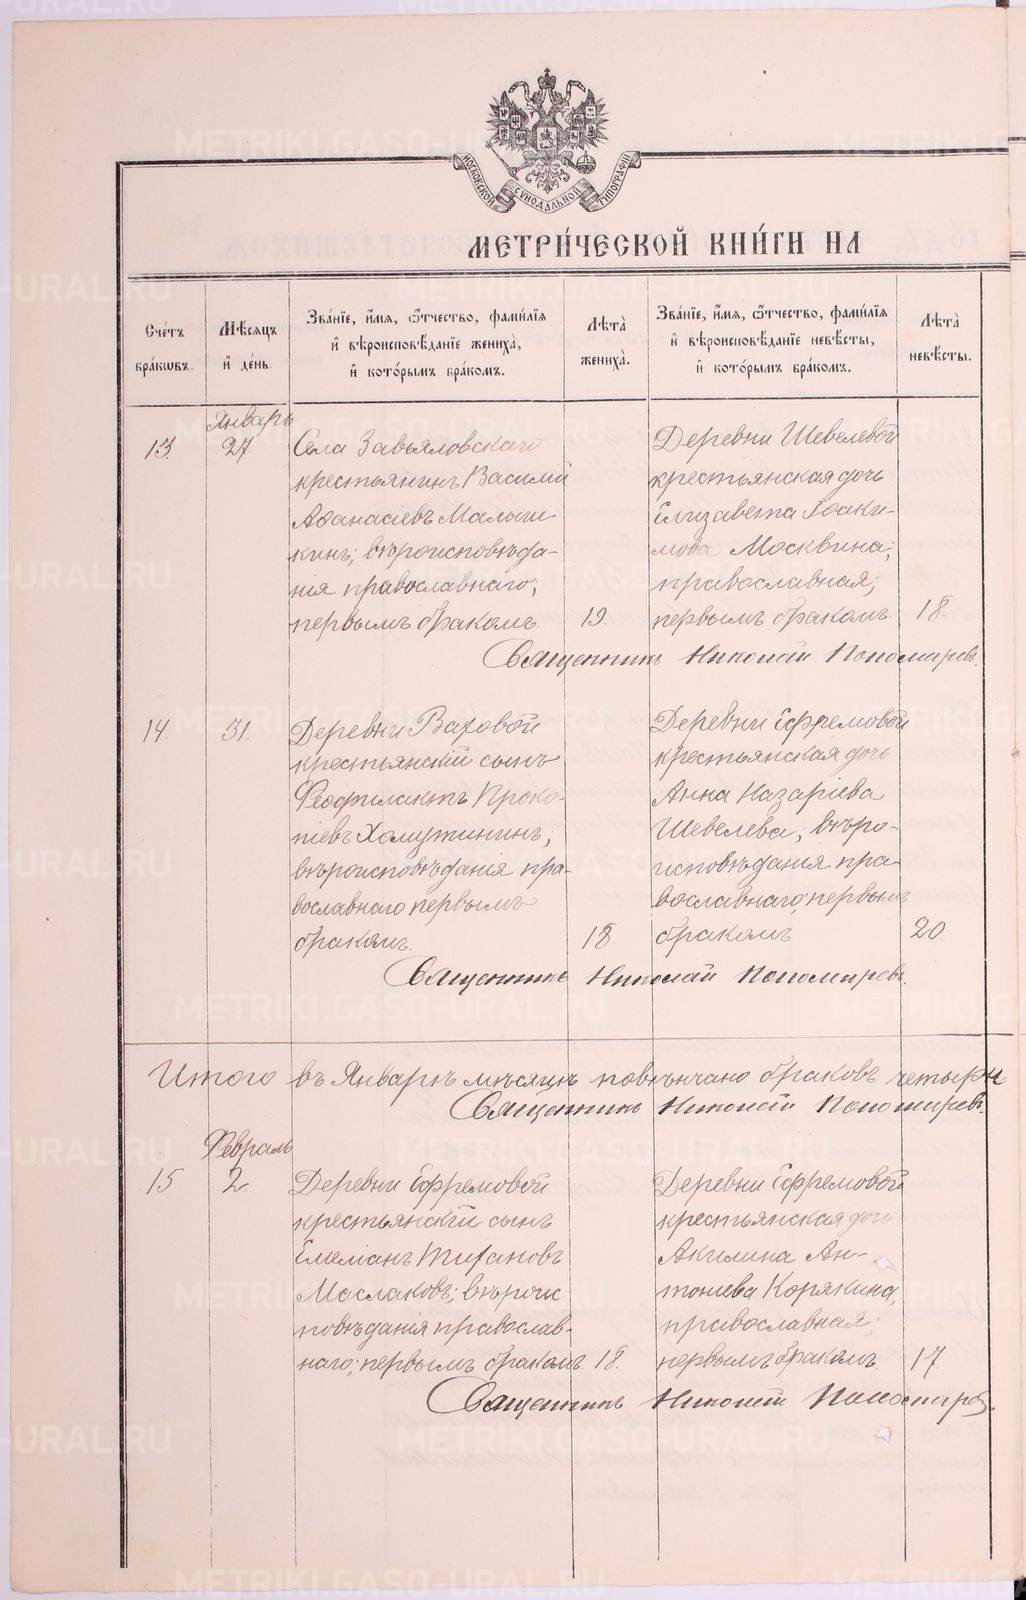 МОСКОВСКОЙ СѴНОДАЛЬНОЙ ТИПОГРАФІИ
МЕТРИ́ЧЕСКОЙ КНИ́ГИ НА
Сче́тъ бра́кѡвъ.
Мѣ́сяцъ и҆ де́нь.
Зва́нїе, и҆́мѧ, ѻ҆́тчество, фами́лїѧ
и҆ вѣроисповѣ́данїе жениха̀,
и҆ кото́рымъ бра́комъ.
Лѣ̑та жениха̀.
Зва́нїе, и҆́мѧ, ѻ҆́тчество, фами́лїѧ
и҆ вѣроисповѣ́данїе невѣ́сты,
и҆ кото́рымъ бра́комъ.
Лѣ̑та невѣ́сты.
Январь
13.
27.
Села Завьяловскаго
крестьянинъ Василій
Аѳанасіевъ Малыги-
кинъ; вѣроисповѣда-
нія православнаго;
первымъ бракомъ.
19.
Деревни Шевелевой
крестьянская дочь
Елизавета Іоаки-
мова Москвина;
православная;
первымъ бракомъ
18.
Священникъ Николай Пономаревъ.
14.
31.
Деревни Ваховой
крестьянскій сынъ
Феофилактъ Проко-
піевъ Хомутининъ;
вѣроисповѣданія пра-
вославнаго первымъ
бракомъ.
18
Деревни Ефремовой
крестьянская дочь
Анна Назаріева
Шевелева; вѣро-
исповѣданія пра-
вославнаго; первымъ
бракомъ
20.
Священникъ Николай Пономаревъ.
Итого въ Январѣ мѣсяцѣ повѣнчано браковъ четырн
Священникъ Николай Пономаревъ.
Февраль
15
2.
Деревни Ефремовой
крестьянскій сынъ
Емеліанъ Титановъ
Маслаковъ; вѣроис
повѣданія православ-
наго; первымъ бракомъ.
18.
Деревни Ефремовой
крестьянская дочь
Акилина Ан-
тоніева Корякина,
православная;
первымъ бракомъ.
17.
Священникъ Николай Пономаревъ.
METRIKI.GASO-URAL.RU